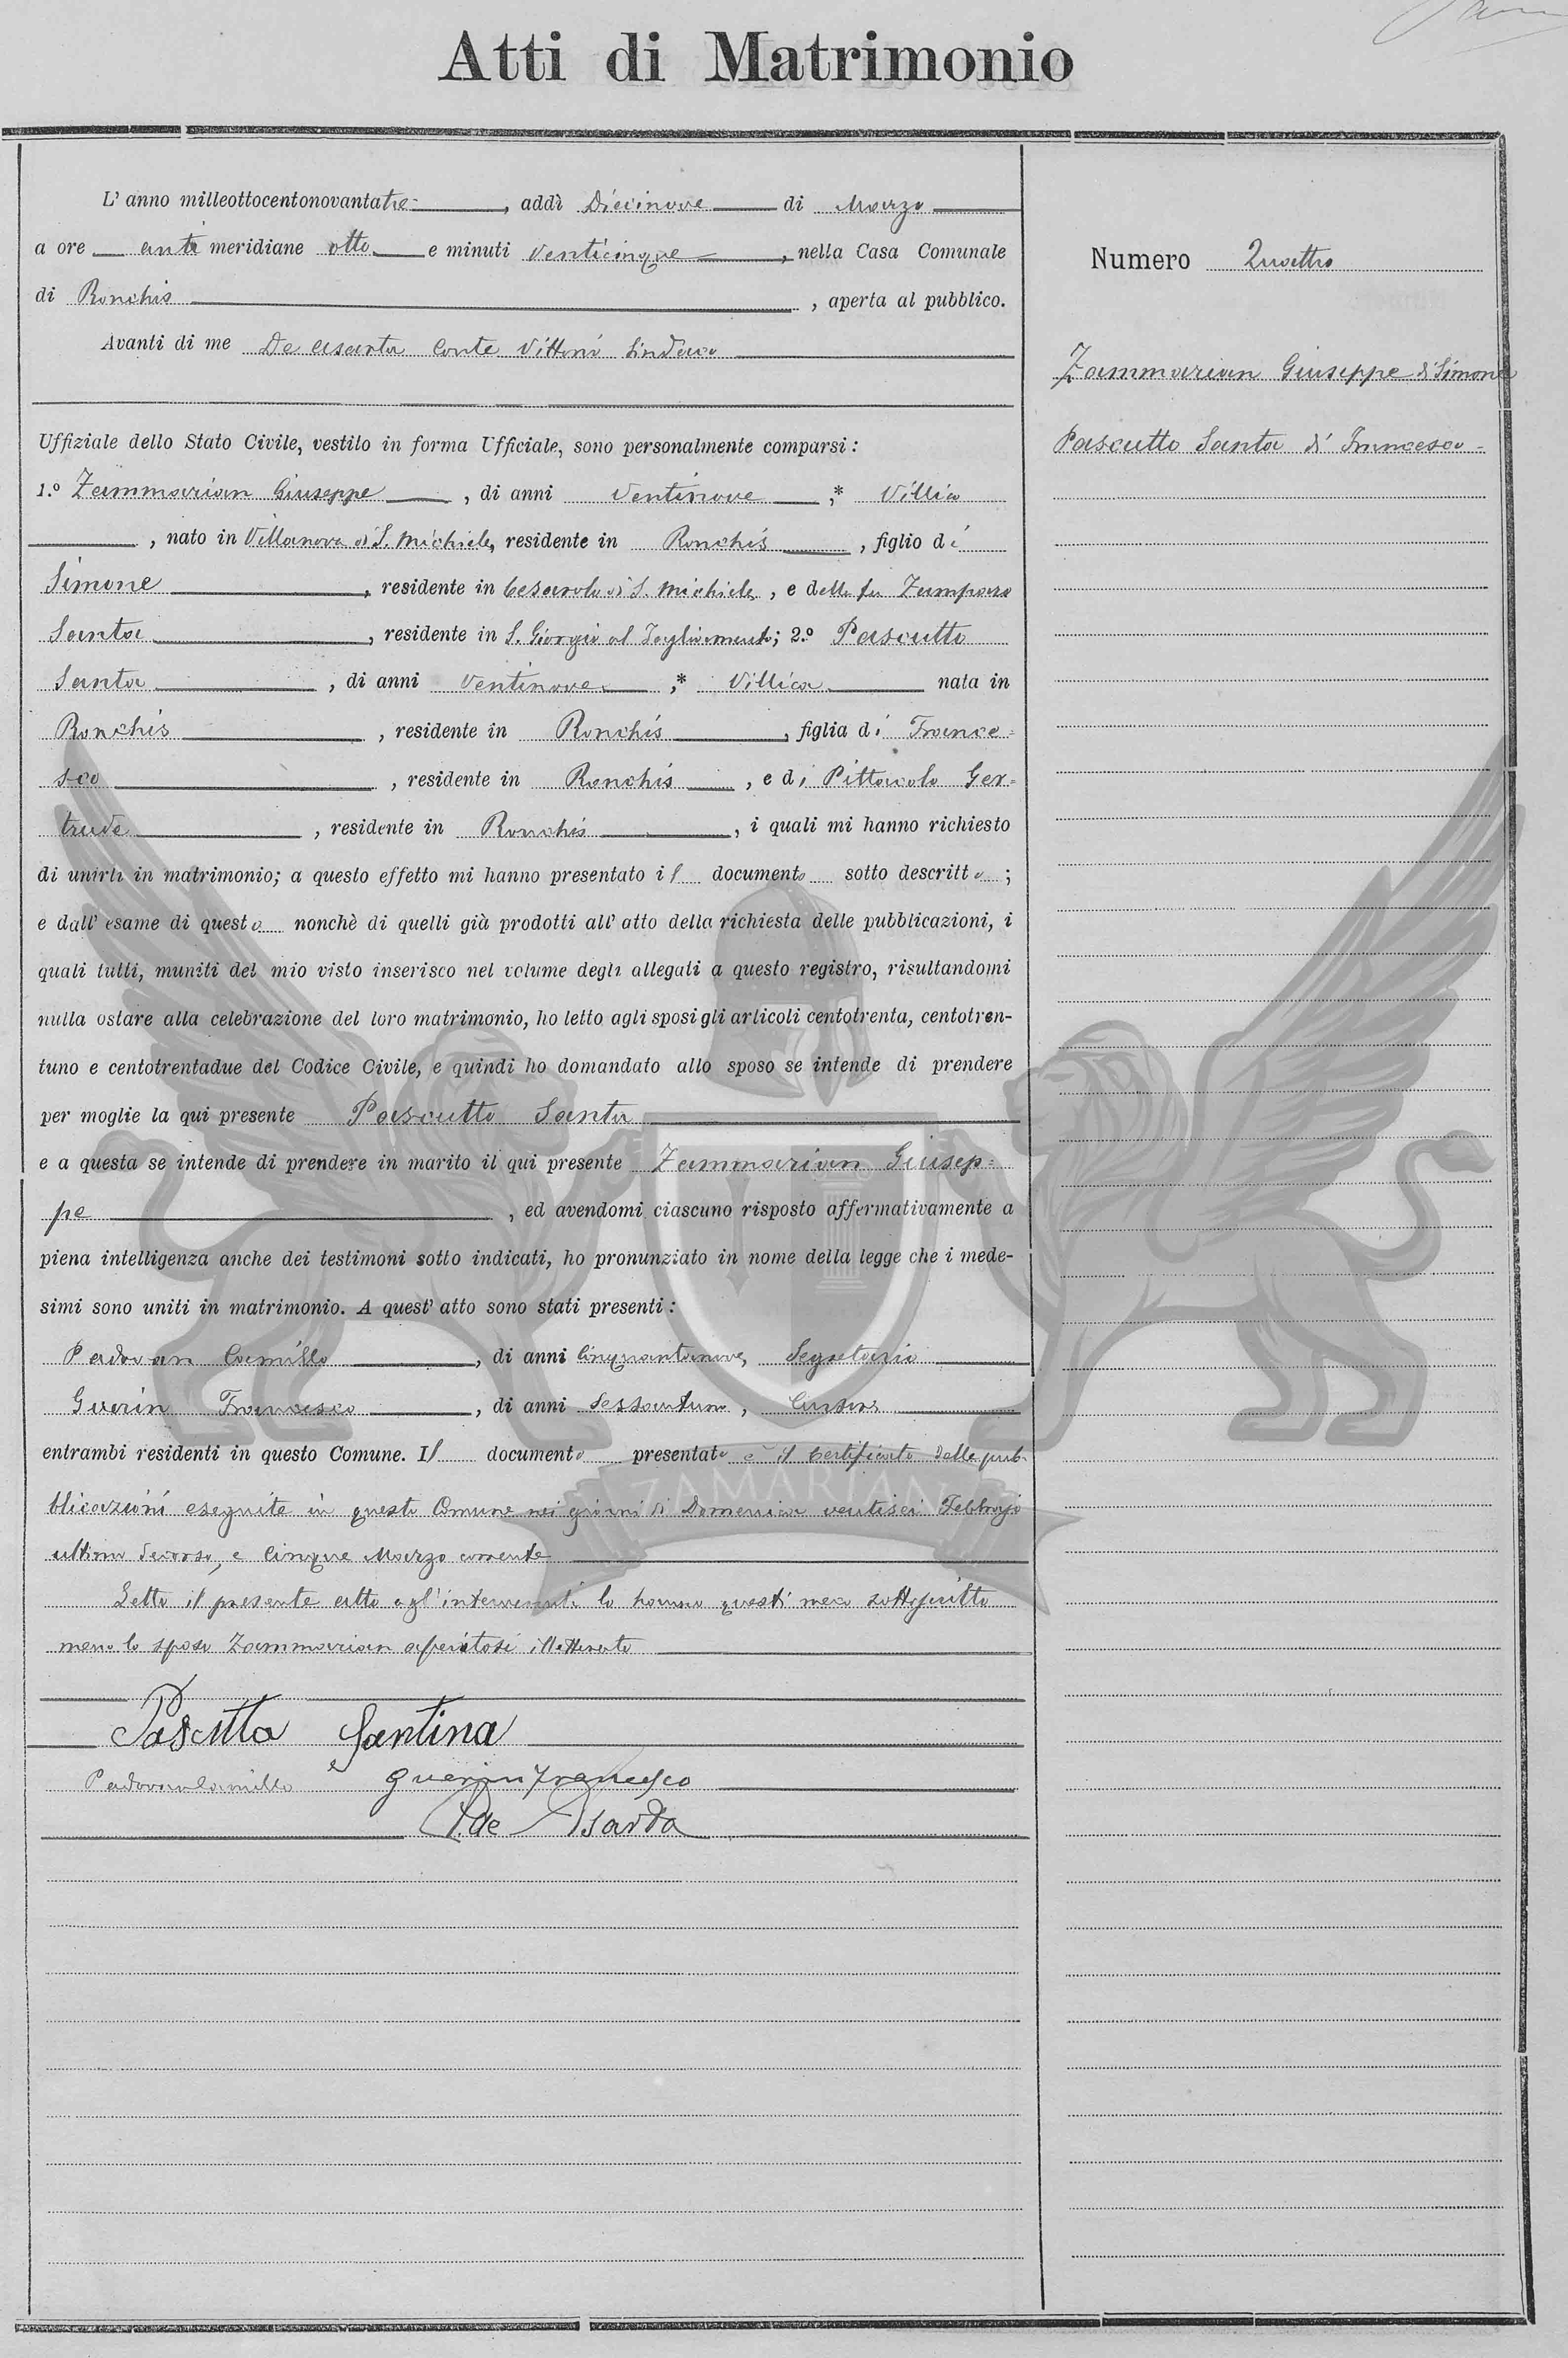 Atti di Matrimonio
L' anno milleottocentonovantatre, addì Diecinove di Marzo
a ore anti meridiane otto e minuti venticinque, nella Casa Comunale
di Ronchis, aperta al pubblico.
Avanti di me De Asarta Conte Vittorio Sindaco
Uffiziale dello Stato Civile, vestito in forma Ufficiale, sono personalmente comparsi:
1.º Zammarian Giuseppe, di anni ventinove,* Villico
, nato in Villanova di S. Michiele, residente in Ronchis, figlio di
Simone, residente in Cesarolo di S. Michiele, e della fu Zamparo
Santa, residente in S. Giorgio al Tagliamento; 2.º Pascutto
Santa, di anni ventinove,* Villica nata in
Ronchis, residente in Ronchis, figlia di France=
sco, residente in Ronchis, e di Pittacolo Ger=
trude, residente in Ronchis, i quali mi hanno richiesto
di unirli in matrimonio; a questo effetto mi hanno presentato il documento sotto descritto;
e dall' esame di questo nonchè di quelli già prodotti all' atto della richiesta delle pubblicazioni, i
quali tutti, muniti del mio visto inserisco nel volume degli allegati a questo registro, risultandomi
nulla ostare alla celebrazione del loro matrimonio, ho letto agli sposi gli articoli centotrenta, centotren-
tuno e centotrentadue del Codice Civile, e quindi ho domandato allo sposo se intende di prendere
per moglie la qui presente Pascutto Santa
e a questa se intende di prendere in marito il qui presente Zammarian Giusep=
pe, ed avendomi ciascuno risposto affermativamente a
piena intelligenza anche dei testimoni sotto indicati, ho pronunziato in nome della legge che i mede-
simi sono uniti in matrimonio. A quest' atto sono stati presenti:
Padovan Camillo, di anni cinquantanove, Segretario
Guerin Francesco, di anni sessantuno, Cursore
entrambi residenti in questo Comune. Il documento presentato è il certificato delle pub-
blicazioni eseguite in questo Comune nei giorni di Domenica ventisei Febbrajo
ultimo decorso, e cinque Marzo corrente
Letto il presente atto agl'intervenuti lo hanno questi meco sottoscritto
meno lo sposo Zammarian asseritosi illetterato
Pascutto Santina
Padovan Camillo Guerin Francesco
V. de Asarta
Numero Quattro
Zammarian Giuseppe di Simone
Pascutto Santa di Francesco
ZAMARIAN